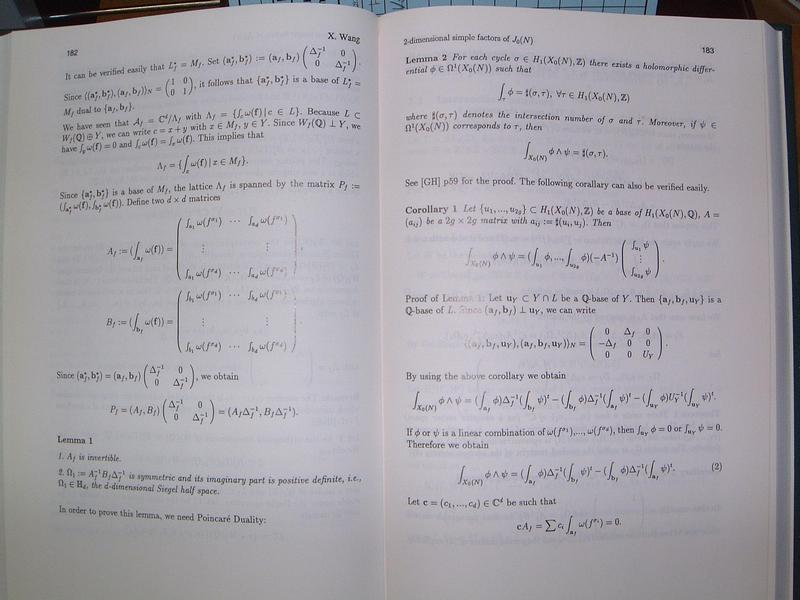 182
X. Wang
It can be verified easily that L*_f = M_f. Set (a*_f, b*_f) := (a_f, b_f) ( Δ_f^{-1} 0 ; 0 Δ_f^{-1} ).
Since ⟨(a*_f, b*_f), (a_f, b_f)⟩_N = ( 1 0 ; 0 1 ), it follows that {a*_f, b*_f} is a base of L*_f =
M_f dual to {a_f, b_f}.
We have seen that A_f = C^d/Λ_f with Λ_f = {∫_c ω(f) | c ∈ L}. Because L ⊂
W_f(Q) ⊕ Y, we can write c = x + y with x ∈ M_f, y ∈ Y. Since W_f(Q) ⊥ Y, we
have ∫_y ω(f) = 0 and ∫_c ω(f) = ∫_x ω(f). This implies that
Λ_f = {∫_x ω(f) | x ∈ M_f}.
Since {a*_f, b*_f} is a base of M_f, the lattice Λ_f is spanned by the matrix P_f :=
(∫_{a*_f} ω(f), ∫_{b*_f} ω(f)). Define two d × d matrices
A_f := (∫_{a_f} ω(f)) = ( ∫_{a_1} ω(f^{σ_1}) ⋯ ∫_{a_d} ω(f^{σ_1}) ; ⋮ ⋮ ; ∫_{a_1} ω(f^{σ_d}) ⋯ ∫_{a_d} ω(f^{σ_d}) )
B_f := (∫_{b_f} ω(f)) = ( ∫_{b_1} ω(f^{σ_1}) ⋯ ∫_{b_d} ω(f^{σ_1}) ; ⋮ ⋮ ; ∫_{b_1} ω(f^{σ_d}) ⋯ ∫_{b_d} ω(f^{σ_d}) )
Since (a*_f, b*_f) = (a_f, b_f) ( Δ_f^{-1} 0 ; 0 Δ_f^{-1} ), we obtain
P_f = (A_f, B_f) ( Δ_f^{-1} 0 ; 0 Δ_f^{-1} ) = (A_fΔ_f^{-1}, B_fΔ_f^{-1}).
Lemma 1
1. A_f is invertible.
2. Ω_1 := A_f^{-1}B_fΔ_f^{-1} is symmetric and its imaginary part is positive definite, i.e.,
Ω_1 ∈ H_d, the d-dimensional Siegel half space.
In order to prove this lemma, we need Poincaré Duality:
2-dimensional simple factors of J_0(N)
183
Lemma 2 For each cycle σ ∈ H_1(X_0(N), Z) there exists a holomorphic differ-
ential φ ∈ Ω^1(X_0(N)) such that
∫_τ φ = ♯(σ, τ), ∀τ ∈ H_1(X_0(N), Z)
where ♯(σ, τ) denotes the intersection number of σ and τ. Moreover, if ψ ∈
Ω^1(X_0(N)) corresponds to τ, then
∫_{X_0(N)} φ ∧ ψ = ♯(σ, τ).
See [GH] p59 for the proof. The following corallary can also be verified easily.
Corollary 1 Let {u_1, ..., u_{2g}} ⊂ H_1(X_0(N), Z) be a base of H_1(X_0(N), Q), A =
(a_{ij}) be a 2g × 2g matrix with a_{ij} := ♯(u_i, u_j). Then
∫_{X_0(N)} φ ∧ ψ = (∫_{u_1} φ, ..., ∫_{u_{2g}} φ)(−A^{-1}) ( ∫_{u_1} ψ ; ⋮ ; ∫_{u_{2g}} ψ ).
Proof of Lemma 1: Let u_Y ⊂ Y ∩ L be a Q-base of Y. Then {a_f, b_f, u_Y} is a
Q-base of L. Since (a_f, b_f) ⊥ u_Y, we can write
⟨(a_f, b_f, u_Y), (a_f, b_f, u_Y)⟩_N = ( 0 Δ_f 0 ; −Δ_f 0 0 ; 0 0 U_Y ).
By using the above corollary we obtain
∫_{X_0(N)} φ ∧ ψ = (∫_{a_f} φ)Δ_f^{-1}(∫_{b_f} ψ)^t − (∫_{b_f} φ)Δ_f^{-1}(∫_{a_f} ψ)^t − (∫_{u_Y} φ)U_Y^{-1}(∫_{u_Y} ψ)^t.
If φ or ψ is a linear combination of ω(f^{σ_1}), ..., ω(f^{σ_d}), then ∫_{u_Y} φ = 0 or ∫_{u_Y} ψ = 0.
Therefore we obtain
∫_{X_0(N)} φ ∧ ψ = (∫_{a_f} φ)Δ_f^{-1}(∫_{b_f} ψ)^t − (∫_{b_f} φ)Δ_f^{-1}(∫_{a_f} ψ)^t. (2)
Let c = (c_1, ..., c_d) ∈ C^d be such that
cA_f = ∑ c_i ∫_{a_f} ω(f^{σ_i}) = 0.